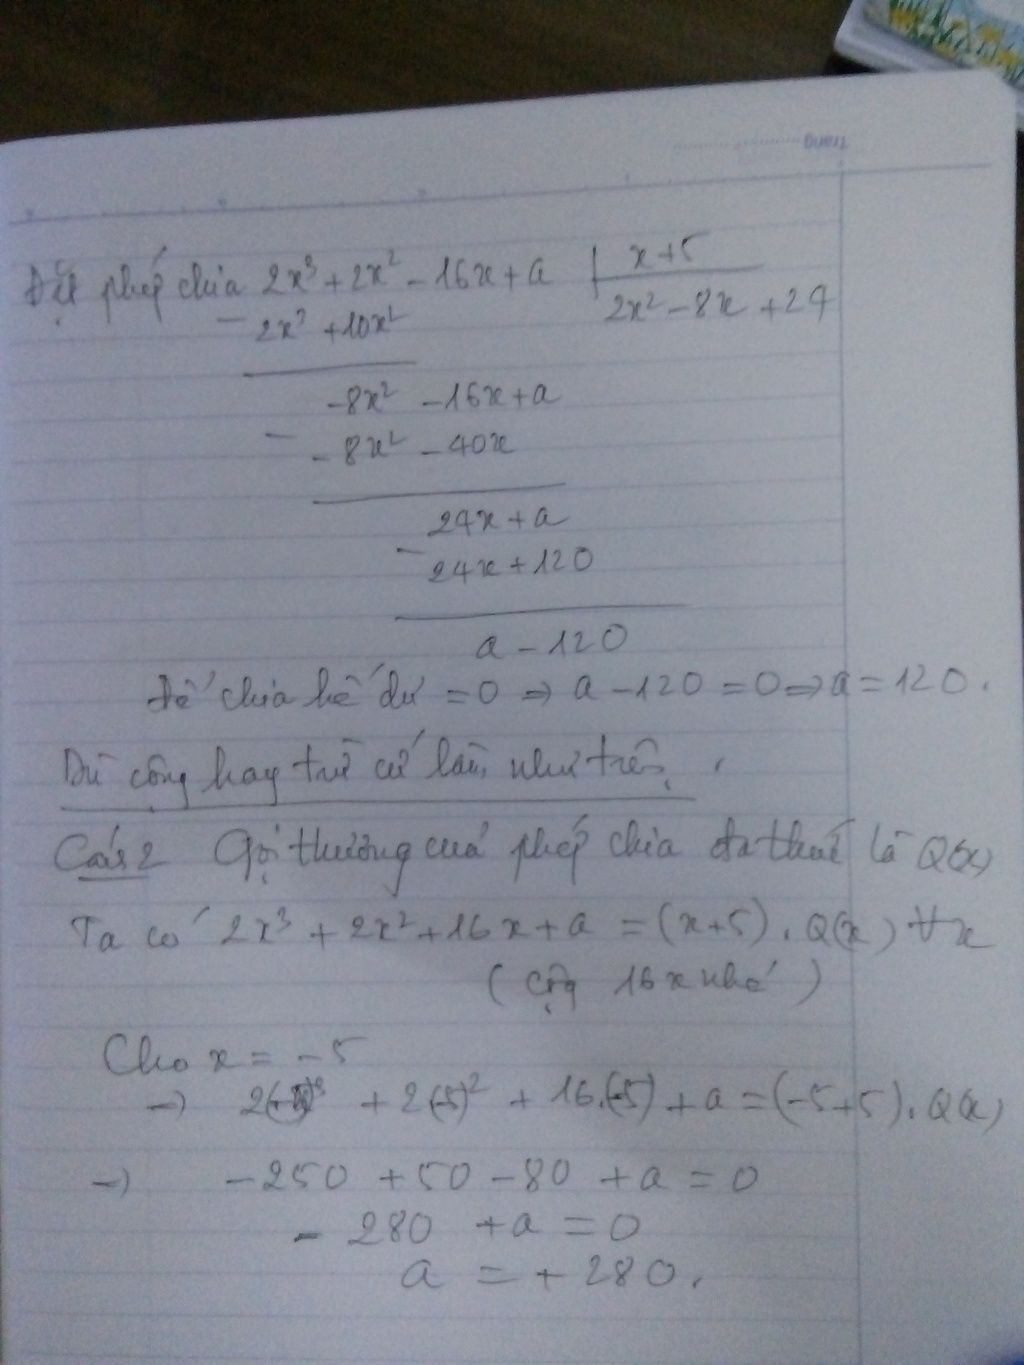 Trang
Đặt phép chia 2x³ + 2x² - 16x + a | x + 5
- 2x³ + 10x² 2x² - 8x + 24
-8x² - 16x + a
- -8x² - 40x
24x + a
- 24x + 120
a - 120
Để chia hết dư = 0 ⇒ a - 120 = 0 ⇒ a = 120.
Dù cộng hay trừ cứ làm như trên.
Cách 2 Gọi thương của phép chia đa thức là Q(x)
Ta có 2x³ + 2x² + 16x + a = (x+5) . Q(x) ∀x
(cộng 16x nhé)
Cho x = -5
→ 2(-5)³ + 2(-5)² + 16.(-5) + a = (-5+5). Q(x)
→ -250 + 50 - 80 + a = 0
- 280 + a = 0
a = + 280.